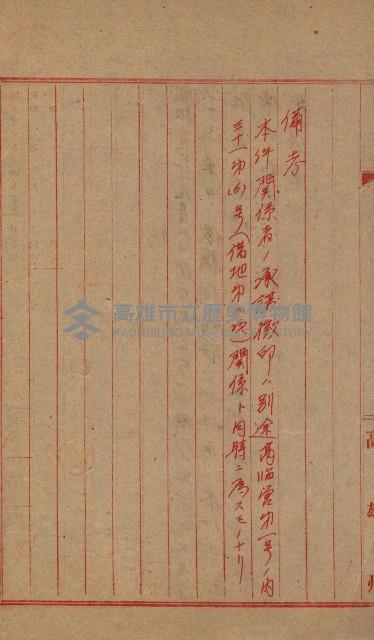 備考
本件関係者ノ承諾徴印ハ別途高臨営第一号ノ内
三十一第(6)号(借地第一次)関係ト同時ニ為スモノナリ
高雄州
高雄市立歷史博物館
KAOHSIUNG MUSEUM OF HISTORY